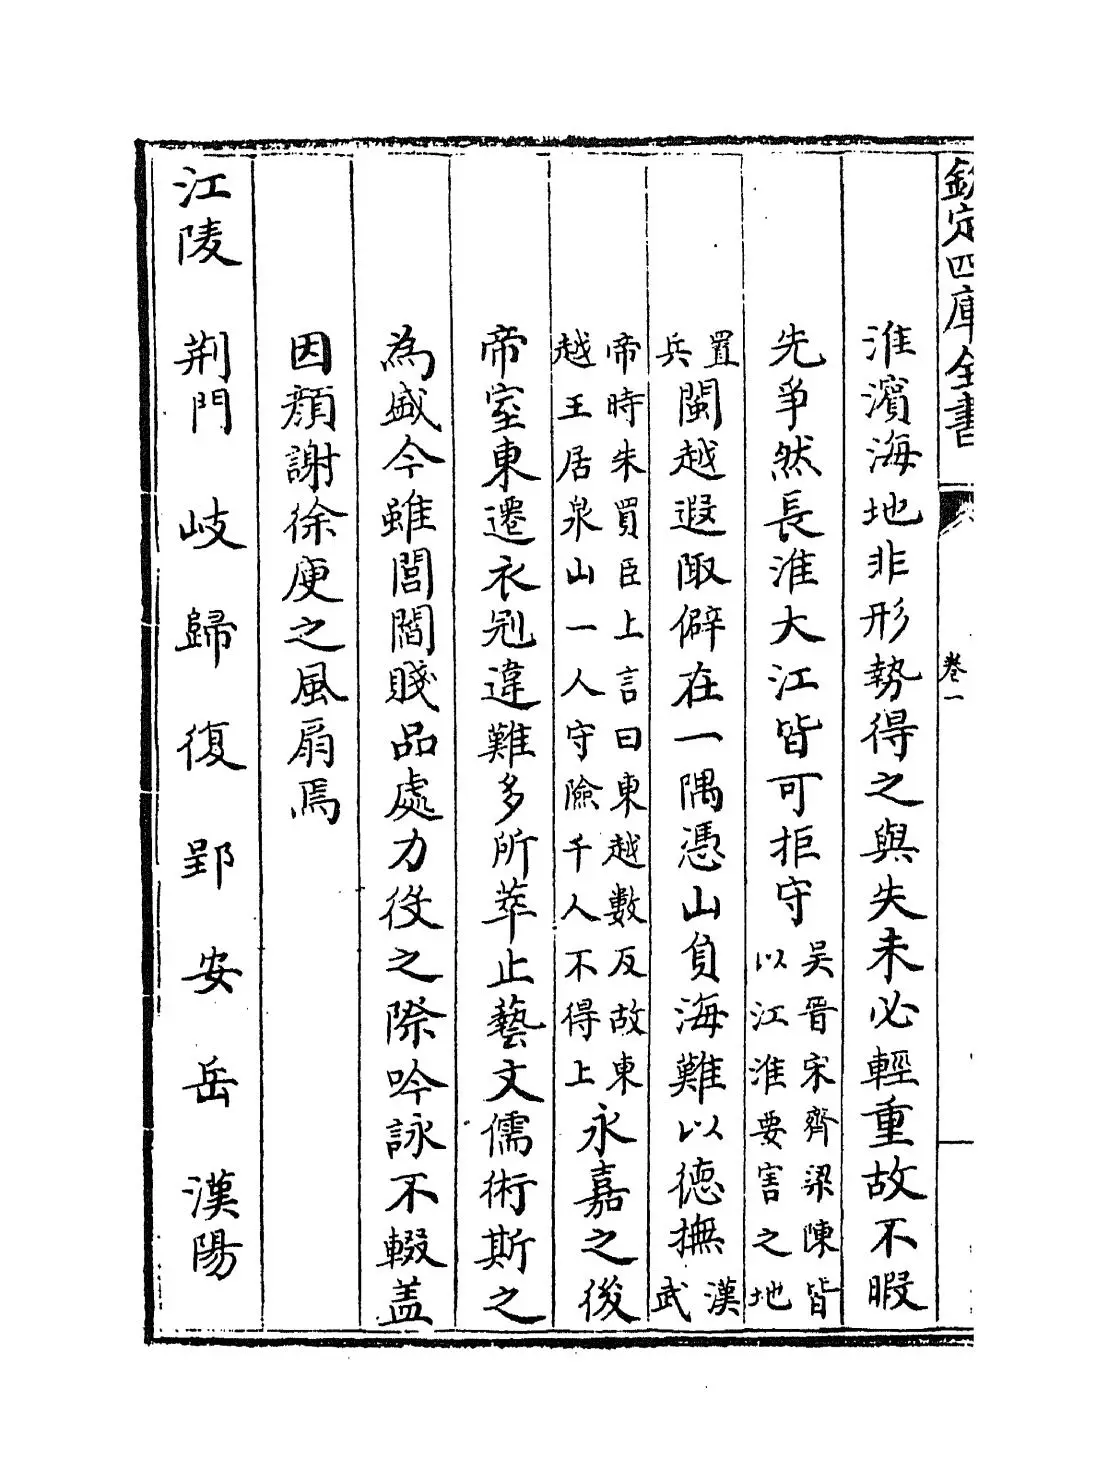 欽定四庫全書 卷一
淮濱海地非形勢得之與失未必輕重故不暇
先爭然長淮大江皆可拒守吴晉宋齊梁陳皆以江淮要害之地
置兵閩越遐陬僻在一隅憑山負海難以德撫漢武
帝時朱買臣上言曰東越數反故東越王居泉山一人守險千人不得上永嘉之後
帝室東遷衣冠違難多所萃止藝文儒術斯之
為盛今雖閭閻賤品處力役之際吟詠不輟盖
因顔謝徐庾之風扇焉
江陵 荆門 岐 歸 復 郢 安 岳 漢陽